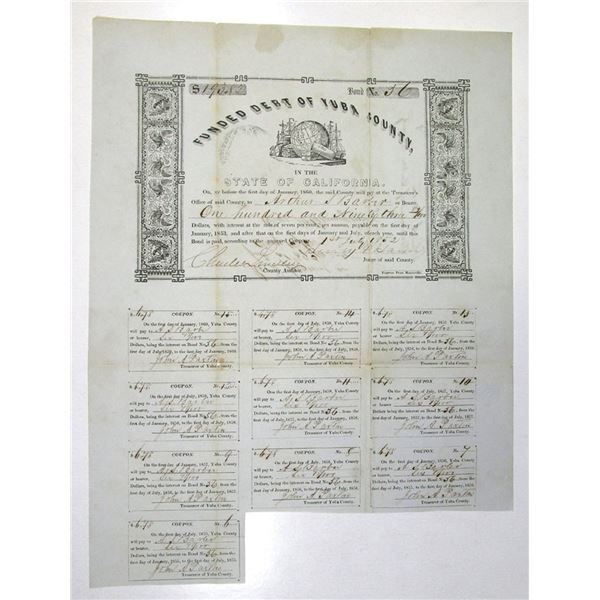 $ 193.82 Bond No. 36
FUNDED DEBT OF YUBA COUNTY,
IN THE
STATE OF CALIFORNIA.
On, or before the first day of January, 1860, the said County will pay at the Treasurer's
Office of said County, to Arthur S Barber or Bearer,
One hundred and Ninety three
Dollars, with interest at the rate of seven per cent, per annum, payable on the first day of
January, 1853, and after that on the first days of January and July, of each year, until this
Bond is paid, according to the annexed Coupons. 1852
Charles
County Auditor. Judge of said County.
Express Print, Marysville.
$ 6.78 COUPON. No. 15
On the first day of January, 1860, Yuba County
will pay to A S Barber
or bearer, Six
Dollars, being the interest on Bond No. 36, from the
first day of July, 1859, to the first day of January, 1860.
John A. Paxton
Treasurer of Yuba County.
$ 6.78 COUPON. No. 14
On the first day of July, 1859, Yuba County
will pay to A S Barber
or bearer, Six
Dollars, being the interest on Bond No. 36, from the
first day of January, 1859, to the first day of July, 1859.
John A. Paxton
Treasurer of Yuba County.
$ 6.78 COUPON. No. 13
On the first day of January, 1859, Yuba County
will pay to A S Barber
or bearer, Six
Dollars, being the interest on Bond No. 36, from the
first day of July, 1858, to the first day of January, 1859.
John A. Paxton
Treasurer of Yuba County.
$ 6.78 COUPON. No. 12
On the first day of July, 1858, Yuba County
will pay to A S Barber
or bearer, Six
Dollars, being the interest on Bond No. 36, from the
first day of January, 1858, to the first day of July, 1858.
John A. Paxton
Treasurer of Yuba County.
$ 6.78 COUPON. No. 11
On the first day of January, 1858, Yuba County
will pay to A S Barber
or bearer, Six
Dollars, being the interest on Bond No. 36, from the
first day of July, 1857, to the first day of January, 1858.
John A. Paxton
Treasurer of Yuba County.
$ 6.78 COUPON. No. 10
On the first day of July, 1857, Yuba County
will pay to A S Barber
or bearer, Six
Dollars, being the interest on Bond No. 36, from the
first day of January, 1857, to the first day of July, 1857.
John A. Paxton
Treasurer of Yuba County.
$ 6.78 COUPON. No. 9
On the first day of January, 1857, Yuba County
will pay to A S Barber
or bearer, Six
Dollars, being the interest on Bond No. 36, from the
first day of July, 1856, to the first day of January, 1857.
John A. Paxton
Treasurer of Yuba County.
$ 6.78 COUPON. No. 8
On the first day of July, 1856, Yuba County
will pay to A S Barber
or bearer, Six
Dollars, being the interest on Bond No. 36, from the
first day of January, 1856, to the first day of July, 1856.
John A. Paxton
Treasurer of Yuba County.
$ 6.78 COUPON. No. 7
On the first day of January, 1856, Yuba County
will pay to A S Barber
or bearer, Six
Dollars, being the interest on Bond No. 36, from the
first day of July, 1855, to the first day of January, 1856.
John A. Paxton
Treasurer of Yuba County.
$ 6.78 COUPON. No. 6
On the first day of July, 1855, Yuba County
will pay to A S Barber
or bearer, Six
Dollars, being the interest on Bond No. 36, from the
first day of January, 1855, to the first day of July, 1855.
John A. Paxton
Treasurer of Yuba County.